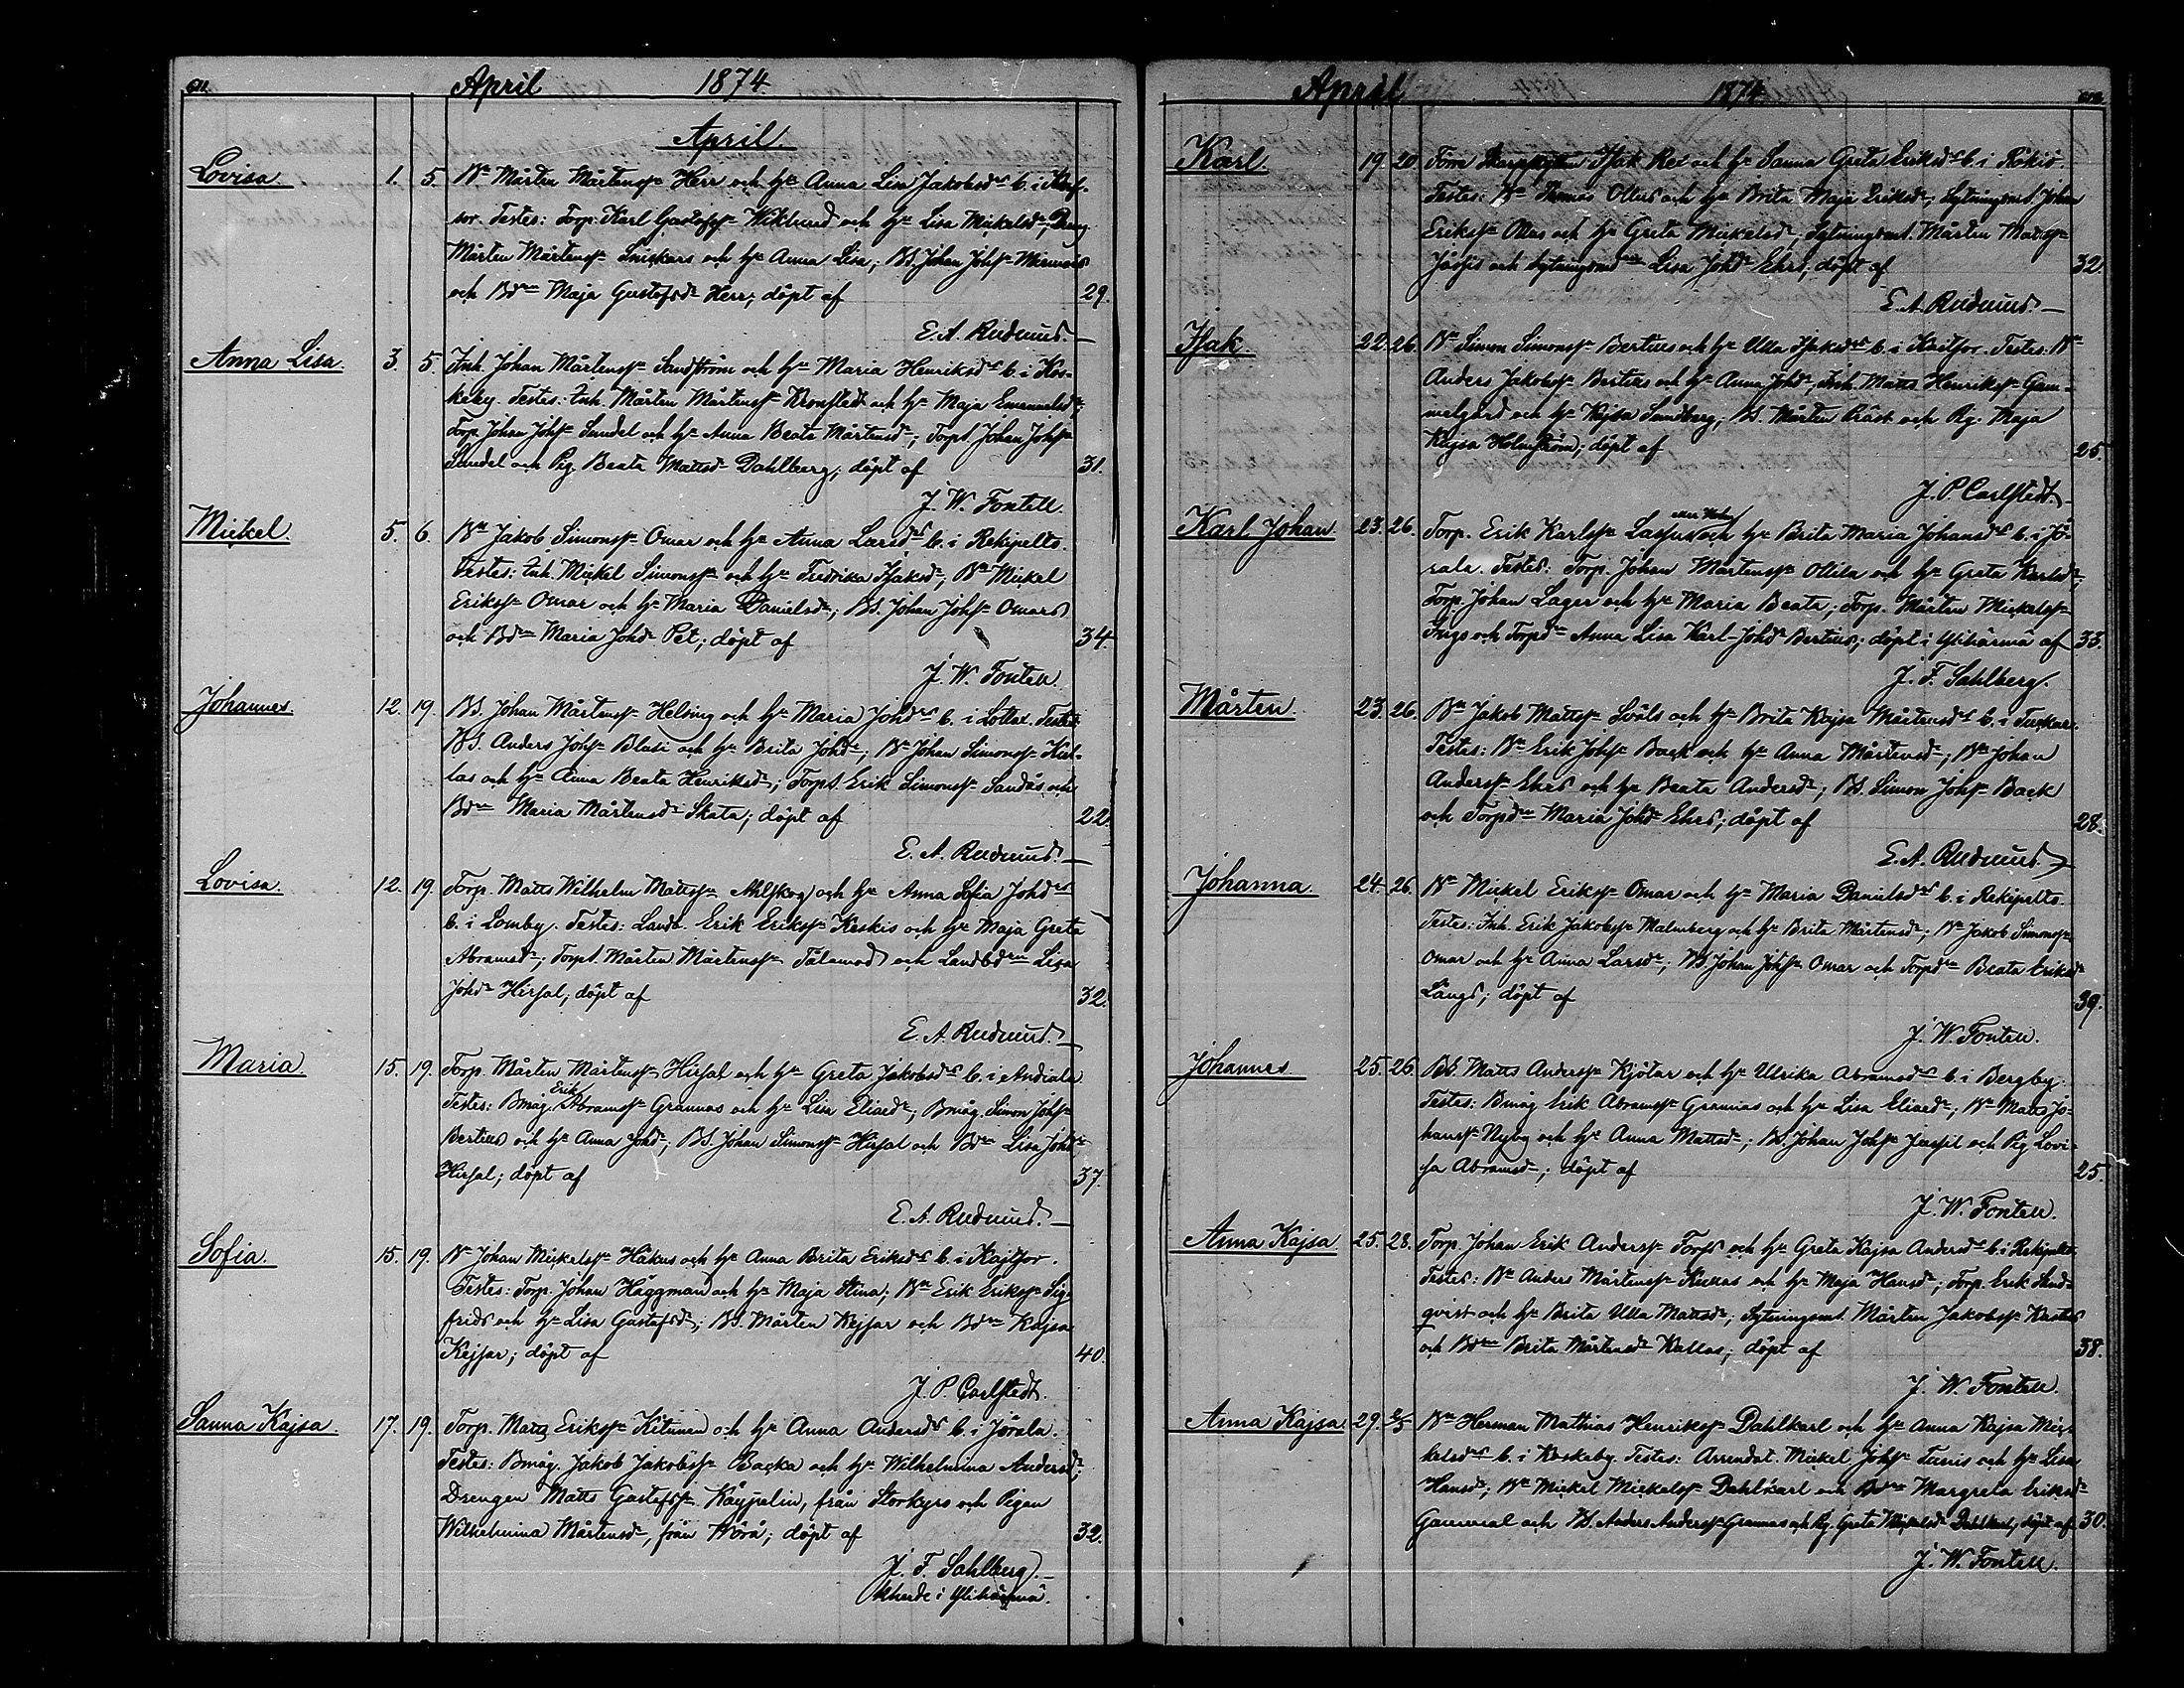 611.
April 1874
April.
Lovisa. 1. 5. Bn Mårten Mårtenss Herr och h. Anna Lisa Jakobsdr b. i
sor. Testes: Torp. Karl Gustafss Wiklund och h. Lisa Mickelsdr; Dräng
Mårten Mårtenss Snickars och h. Anna Lisa; BS. Johan Johss
och Bdn Maja Gustafsdr Herr; döpt af 29.
E. A. Rudnäus.
Anna Lisa. 3. 5. Inh. Johan Mårtenss Sandström och h. Maria Henriksdr b. i Kos-
keby. Testes: Inh. Mårten Mårtenss Kronstedt och h. Maja Emanuelsdr;
Torp. Johan Johss Sundel och h. Anna Beata Mårtensdr; Torps. Johan Johss
Sundel och Pig. Beata Mattsdr Dahlberg; döpt af 31.
J. W. Fontell.
Mickel. 5. 6. Bn Jakob Simonss Omar och h. Anna Larsdr b. i Rekipelto.
Testes: Inh. Mickel Simonss och h. Fredrika Isaksdr; Bn Mickel
Erikss Omar och h. Maria Danielsdr; BS. Johan Johss Omars
och Bdn Maria Johdr Pet; döpt af 34.
J. W. Fontell.
Johannes. 12. 19. BS. Johan Mårtenss Helsing och h. Maria Johdr b. i Lotlax. Testes:
BS. Anders Johss Blusi och h. Brita Johdr; Bn Johan Simonss Kul-
las och h. Anna Beata Henriksdr; Torps. Erik Simonss Sandås och
Bdn Maria Mårtensdr Skata; döpt af 22.
E. A. Rudnäus.
Lovisa. 12. 19. Torp. Matts Wilhelm Mattss Ahlskog och h. Anna Sofia Johdr
b. i Lomby. Testes: Landb. Erik Erikss Keskis och h. Maja Greta
Abramsdr; Torps. Mårten Mårtenss Tålamod och Landbdn Lisa
Johdr Hirsal; döpt af 32.
E. A. Rudnäus.
Maria. 15. 19. Torp. Mårten Mårtenss Hirsal och h. Greta Jakobsdr b. i Andiala
Testes: Bmåg. Erik Abramss Grannas och h. Lisa Eliaedr; Bmåg. Simon Johss
Bertills och h. Anna Johdr; BS. Johan Simonss Hirsal och Bdn Lisa Johdr
Hirsal; döpt af 37.
E. A. Rudnäus.
Sofia. 15. 19. Bn Johan Mickelss Håkus och h. Anna Brita Eriksdr b. i Kajtsor.
Testes: Torp. Johan Häggman och h. Maja Stina; Bn Erik Erikss Sig-
frids och h. Lisa Gustafsdr; BS. Mårten Kejsar och Bdn Kajsa
Kejsar; döpt af 40.
J. P. Carlstedt.
Sanna Kajsa. 17. 19. Torp. Matts Erikss Kitunen och h. Anna Andersdr b. i Jörala.
Testes: Bmåg. Jakob Jakobss Backa och h. Wilhelmina Andersdr;
Drengen Matts Gustafss Käypelin, från Storkyro och Pigan
Wilhelmina Mårtensdr, från Wörå; döpt af 32.
J. F. Sahlberg.
Kherde i Ylihärmä.
April 1874
Karl. 19. 20. Förra Isak Rex och h. Sanna Greta Eriksdr b. i Rökiö.
Testes: Bn Thomas Ollus och h. Brita Maja Eriksdr; Sytningsm. Johan
Erikss Ollus och h. Greta Mickelsdr; Sytningsm. Mårten Mattss
Jåssis och Sytningsm Lisa Johdr Ehrs; döpt af 32.
E. A. Rudnäus.
Isak. 22. 26. Bn Simon Simonss Bertills och h. Ulla Isaksdr b. i Kaitsor. Testes: Bn
Anders Jakobss Bertils och h. Anna Johdr; Inh. Matts Henrikss Gam-
melgård och h. Kajsa Sundberg; BS. Mårten och Pig. Maja
Kajsa Holmström; döpt af 25.
J. P. Carlstedt.
Karl Johan. 23. 26. Torp. Erik Karlss Lassus och h. Brita Maria Johansdr b. i Jö-
rala. Testes: Torp. Johan Mårtenss Ollila och h. Greta Karlsdr;
Torp. Johan Lager och h. Maria Beata; Torp. Mårten Mickelss
Frigs och Torpdn Anna Lisa Karl-Johdr Bertils; döpt i Ylihärmä af 33.
J. F. Sahlberg.
Mårten 23. 26. Bn Jakob Mattss Svåls och h. Brita Kajsa Mårtensdr b. i Tuckur.
Testes: Bn Erik Johss Back och h. Anna Mårtensdr; Bn Johan
Anderss Ehrs och h. Beata Andersdr; BS. Simon Johss Back
och Torpdn Maria Johdr Ehrs; döpt af 28.
E. A. Rudnäus.
Johanna. 24. 26. Bn Mickel Erikss Omar och h. Maria Danielsdr b. i Rekipelto.
Testes: Inh. Erik Jakobss Malmberg och h. Brita Mårtensdr; Bn Jakob Simonss
Omar och h. Anna Larsdr; BS. Johan Johss Omar och Torpdn Beata Eriksdr
Långs; döpt af 39.
J. W. Fontell.
Johannes 25. 26. BS. Matts Anderss Kjötar och h. Ulrika Abramsdr b. i Bergby.
Testes: Bmåg. Erik Abramss Grannas och h. Lisa Eliaedr; Bn Matts Jo-
hanss Nyby och h. Anna Mattsdr; BS. Johan Johss Jåssil och Pig Lovi-
sa Abramsdr; döpt af 25.
J. W. Fontell.
Anna Kajsa 25. 28. Torp. Johan Erik Anderss Torfs och h. Greta Kajsa Andersdr b. i Rekipelto.
Testes: Bn Anders Mårtenss Kullas och h. Maja Hansdr; Torp. Erik Sand-
qvist och h. Brita Ulla Mattsdr; Sytningsm. Mårten Jakobss Kastus
och Bdn Brita Mårtensdr Kallas; döpt af 38.
J. W. Fontell.
Anna Kajsa. 29. 2/5 Bn Herman Mathias Henrikss Dahlkarl och h. Anna Kajsa Mic-
kelsdr b. i Koskeby. Testes: Arrendat. Mickel Johss Tunis och h. Lisa
Hansdr; Bn Mickel Mickelss Dahlkarl och Bdn Margreta Eriksdr
Gammal och BS. Anders Anderss Grannas och Pig. Greta Mickelsdr Dahlkarl; döpt af 30.
J. W. Fontell.